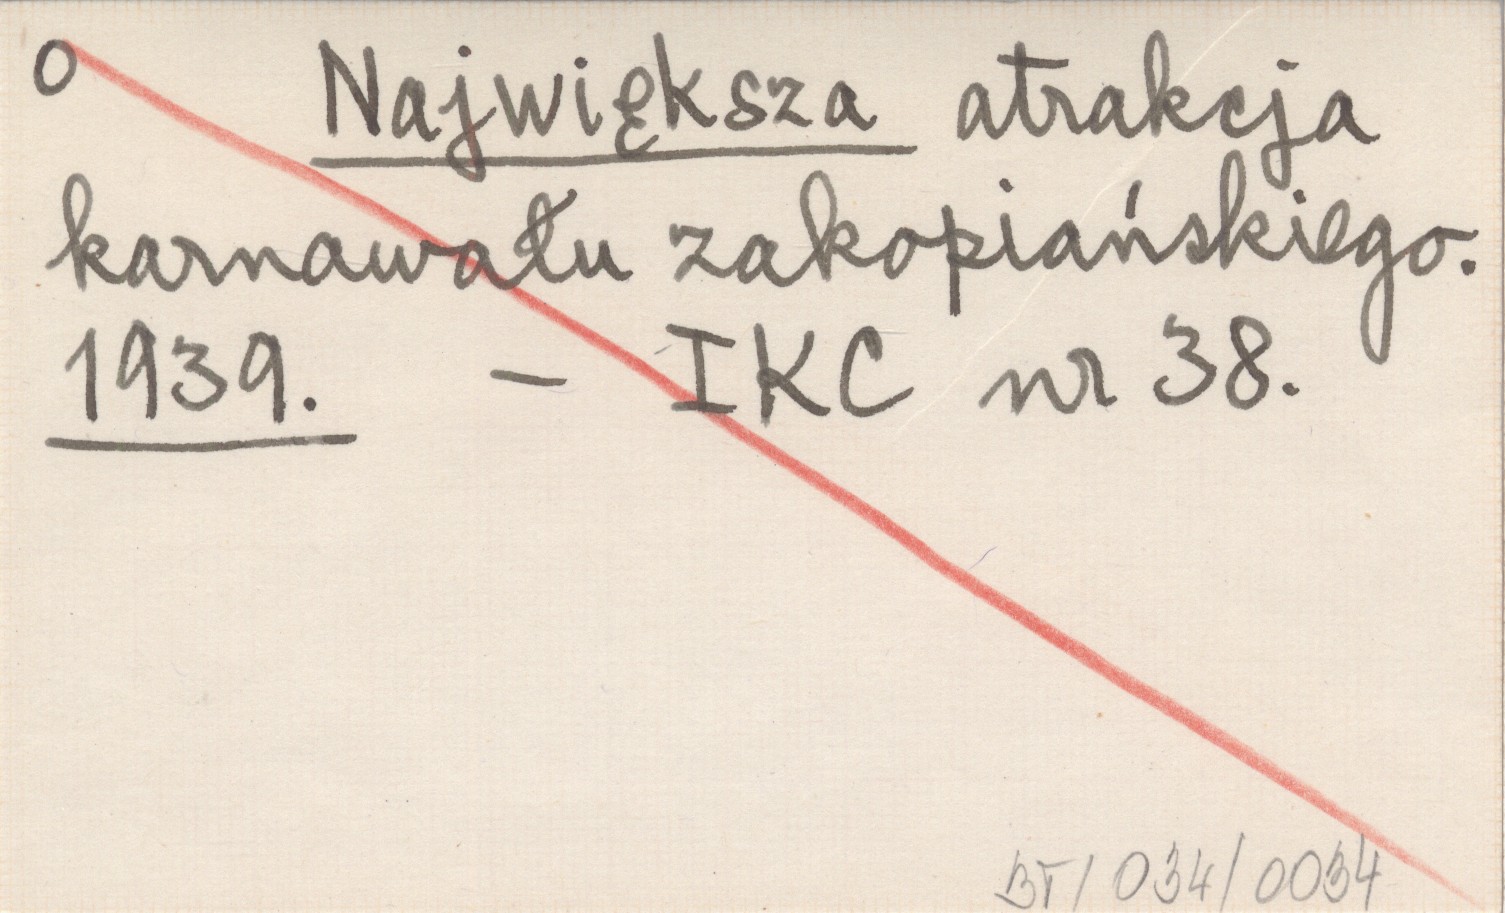 o Największa atrakcja
karnawału zakopiańskiego.
1939. – IKC nr 38.
BT/034/0034